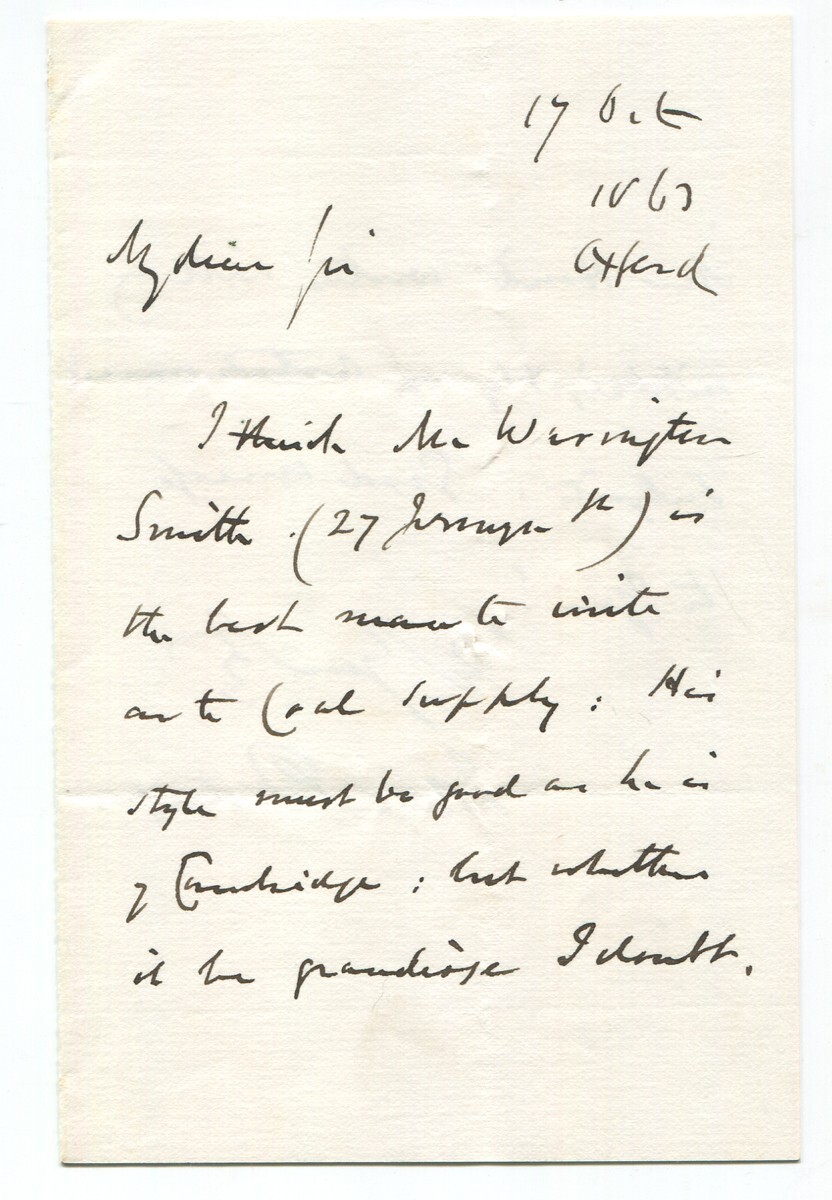 17 Oct
1863
Oxford
My dear Sir
I think Mr Warington
Smith (27 Jermyn St) is
the best man to write
on to Coal Supply : His
style must be good as he is
of Cambridge : but whether
it be grandiose I doubt.